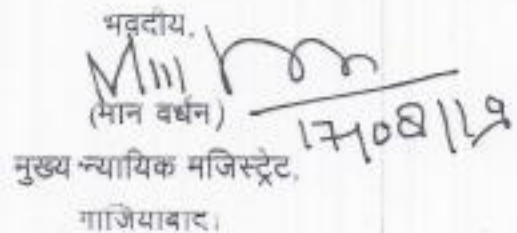 भवदीय,
(मान वर्धन)
17/08/19
मुख्य न्यायिक मजिस्ट्रेट,
गाजियाबाद।